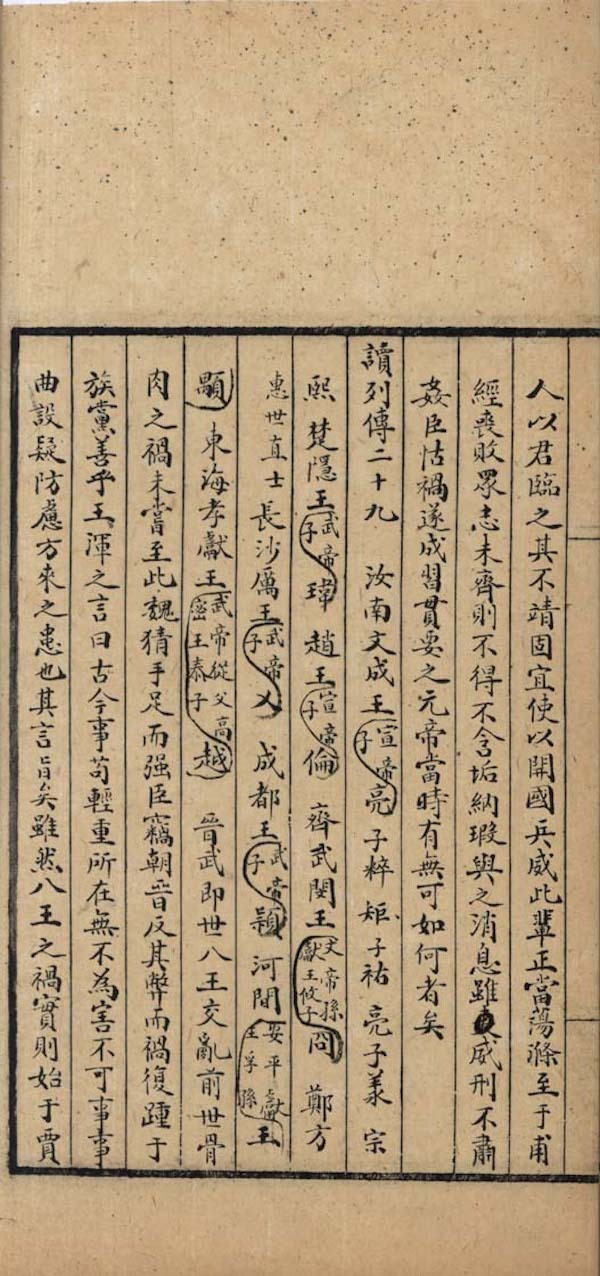 人以君臨之其不靖固宜使以開國兵威此輩正當蕩滌至于甫
經喪敗眾志未齊則不得不含垢納瑕與之消息雖威刑不肅
姦臣怙禍遂成習貫要之元帝當時有無可如何者矣
讀列傳二十九 汝南文成王宣帝子亮 子粹 矩 子祐 亮子羕 宗
熙 楚隱王武帝子瑋 趙王宣帝子倫 齊武閔王文帝孫獻王攸子冏 鄭方
惠世直士 長沙厲王武帝子乂 成都王武帝子穎 河間安平獻王孚孫王
顒 東海孝獻王武帝從父高密王泰子越 晉武即世八王交亂前世骨
肉之禍未嘗至此魏猜手足而强臣竊朝晉反其弊而禍復踵于
族黨善乎王渾之言曰古今事茍輕重所在無不為害不可事事
曲設疑防慮方來之患也其言旨矣雖然八王之禍實則始于賈